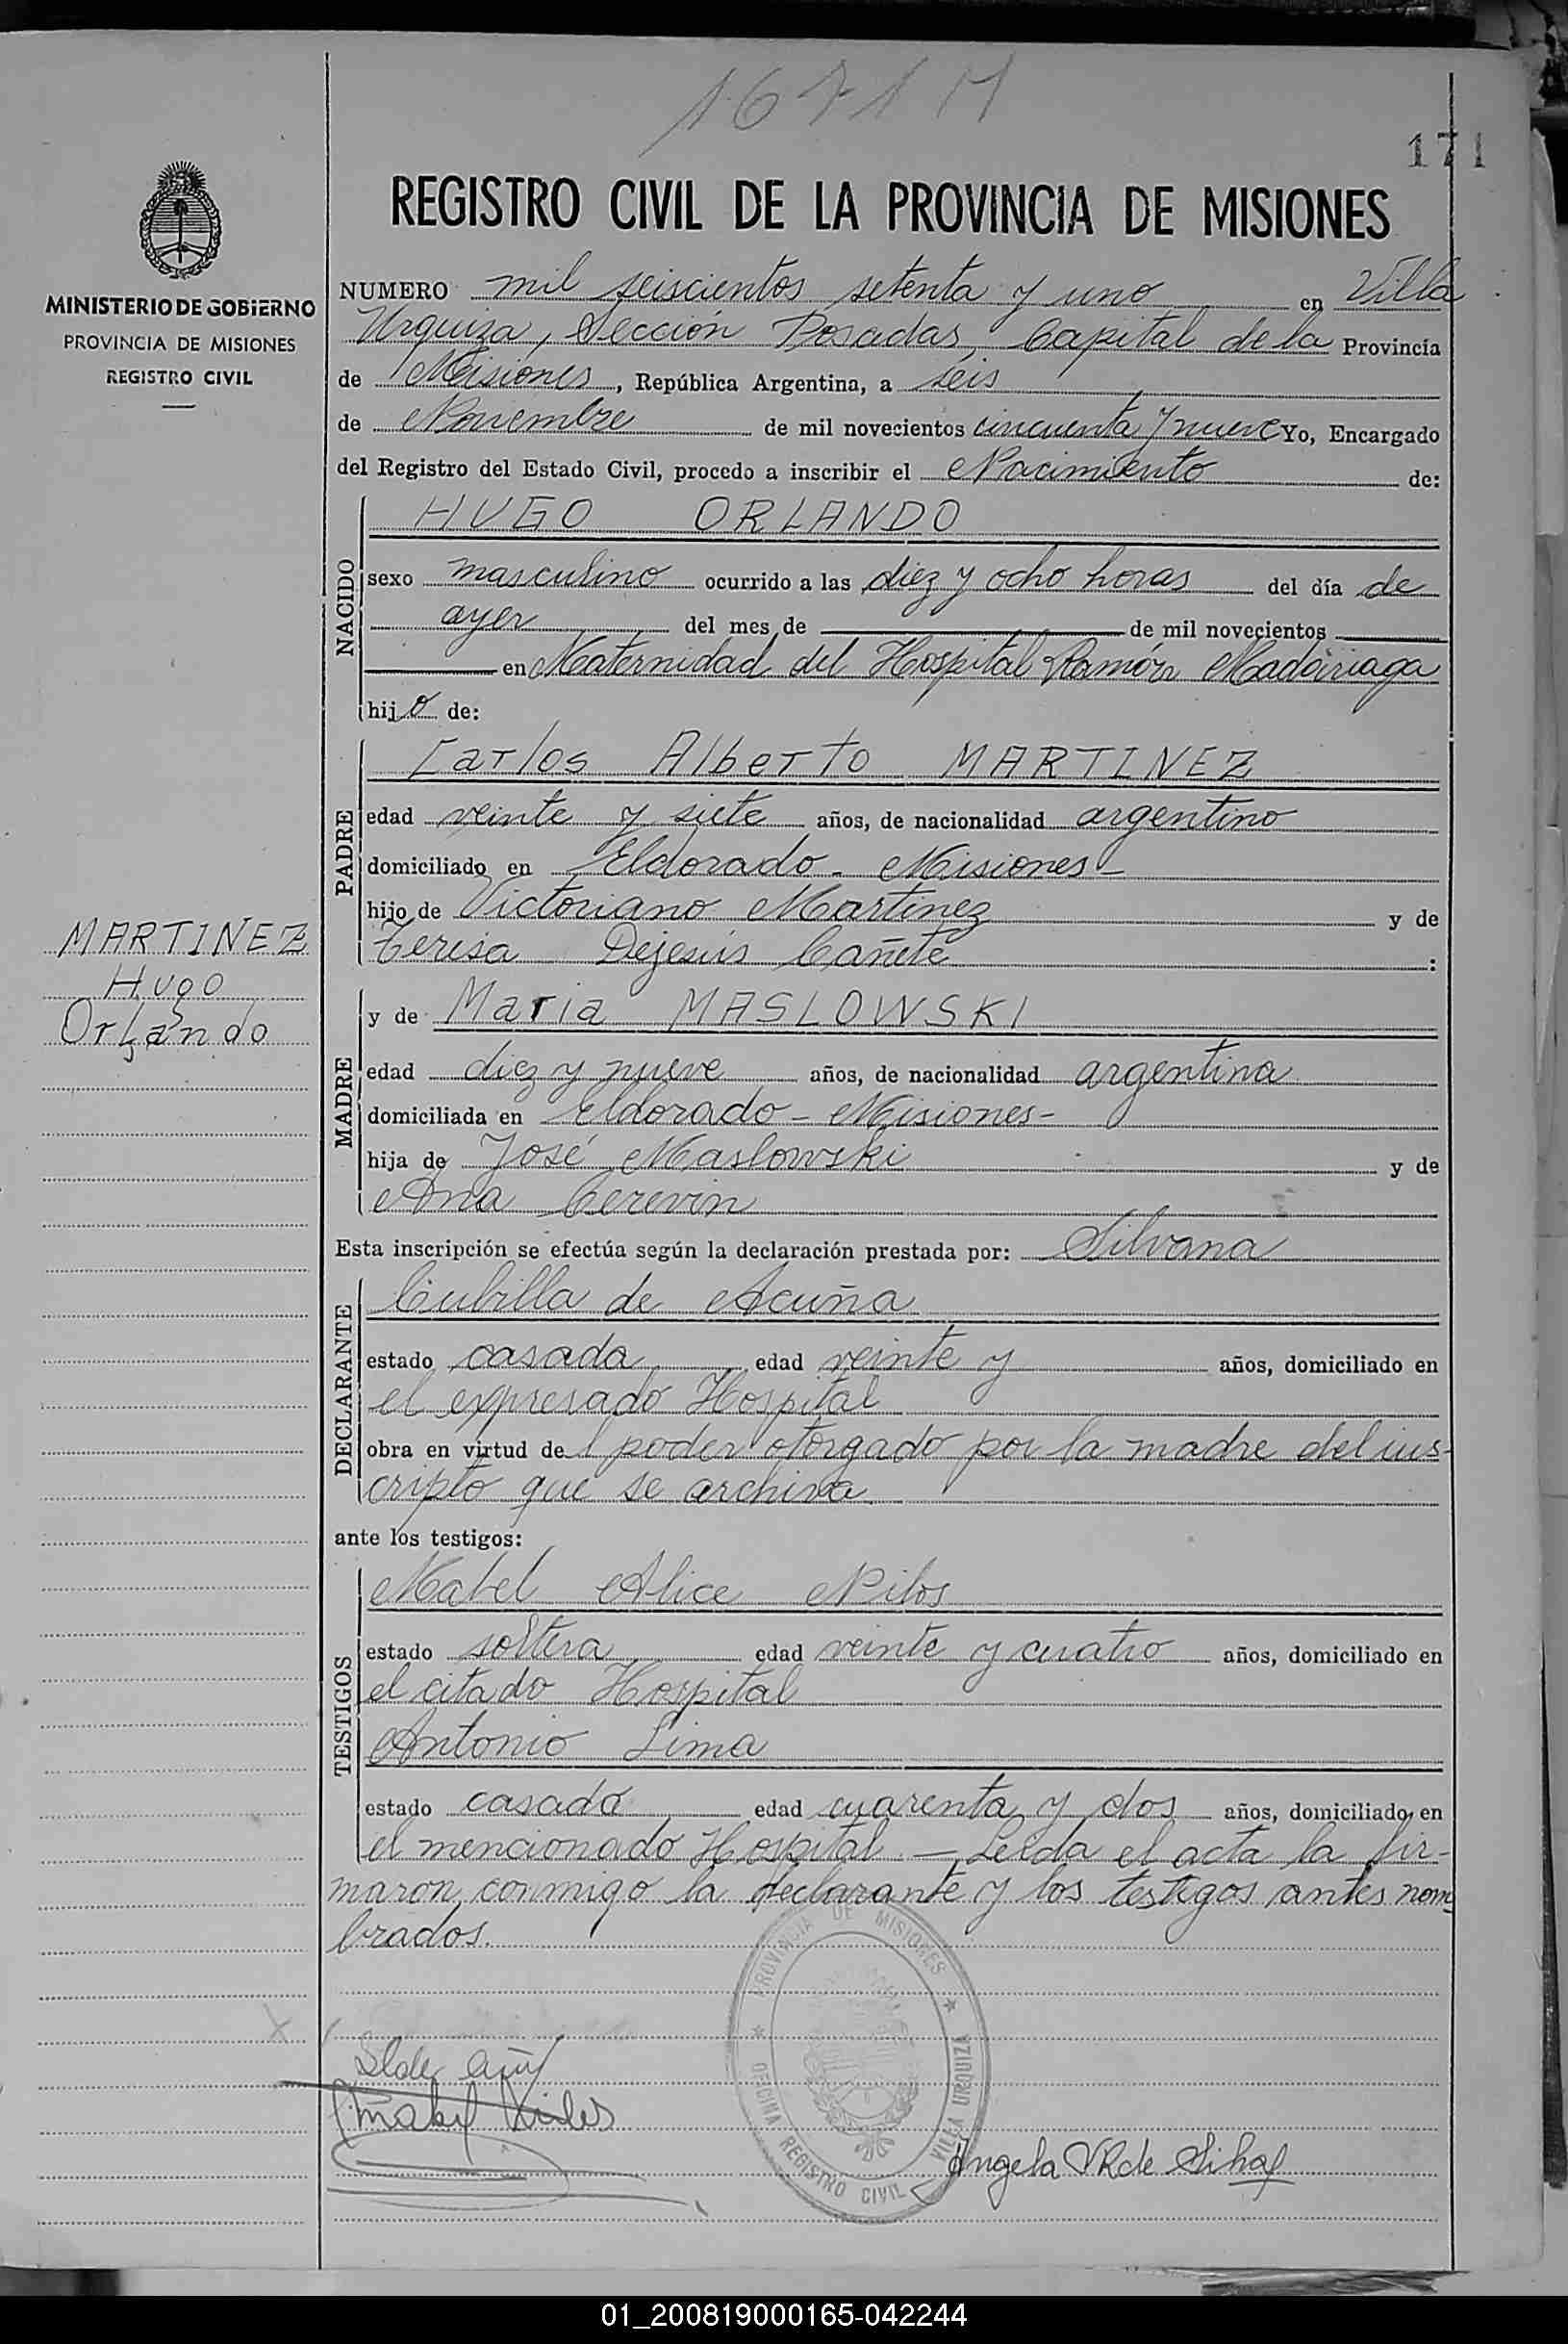 1671 M
171
MINISTERIO DE GOBIERNO
PROVINCIA DE MISIONES
REGISTRO CIVIL
MARTINEZ
Hugo
Orlando
REGISTRO CIVIL DE LA PROVINCIA DE MISIONES
NUMERO mil seiscientos setenta y uno en Villa
Urquiza, Sección Posadas, Capital de la Provincia
de Misiones, República Argentina, a seis
de Noviembre de mil novecientos cincuenta y nueve Yo, Encargado
del Registro del Estado Civil, procedo a inscribir el Nacimiento de:
NACIDO
HUGO ORLANDO
sexo masculino ocurrido a las diez y ocho horas del día de
ayer del mes de de mil novecientos
en Maternidad del Hospital Ramón Madariaga
hijo de:
PADRE
Carlos Alberto MARTINEZ
edad veinte y siete años, de nacionalidad argentino
domiciliado en Eldorado - Misiones -
hijo de Victoriano Martinez y de
Teresa Dejesús Cañete :
MADRE
y de Maria MASLOWSKI
edad diez y nueve años, de nacionalidad argentina
domiciliada en Eldorado - Misiones -
hija de José Maslowski y de
Ana Cerevin
Esta inscripción se efectúa según la declaración prestada por: Silvana
DECLARANTE
Cubilla de Acuña
estado casada edad veinte y años, domiciliado en
el expresado Hospital
obra en virtud del poder otorgado por la madre del ins-
cripto que se archiva
ante los testigos:
TESTIGOS
Mabel Alice Nilos
estado soltera edad veinte y cuatro años, domiciliado en
el citado Hospital
Antonio Lima
estado casado edad cuarenta y dos años, domiciliado en
el mencionado Hospital. — Leída el acta la fir-
maron conmigo la declarante y los testigos antes nom
brados.
PROVINCIA DE MISIONES
OFICINA REGISTRO CIVIL VILLA URQUIZA
Angela de
01_200819000165-042244